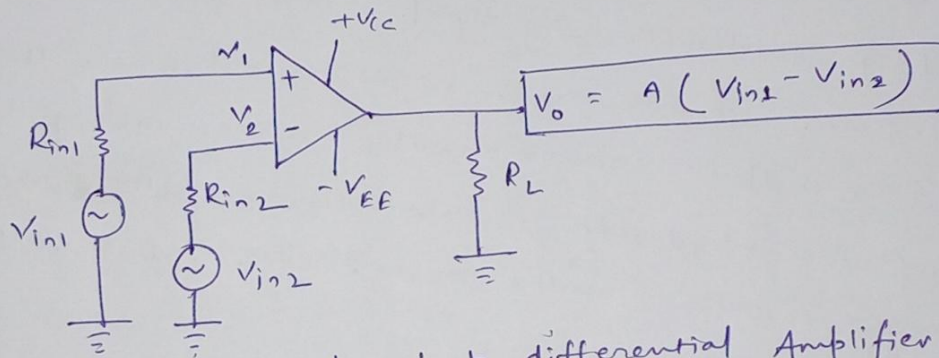 +Vcc
V1
+
V2
-
-VEE
Rin1
Vin1
~
Rin2
~
Vin2
RL
Vo = A ( Vin1 - Vin2 )
differential Amplifier